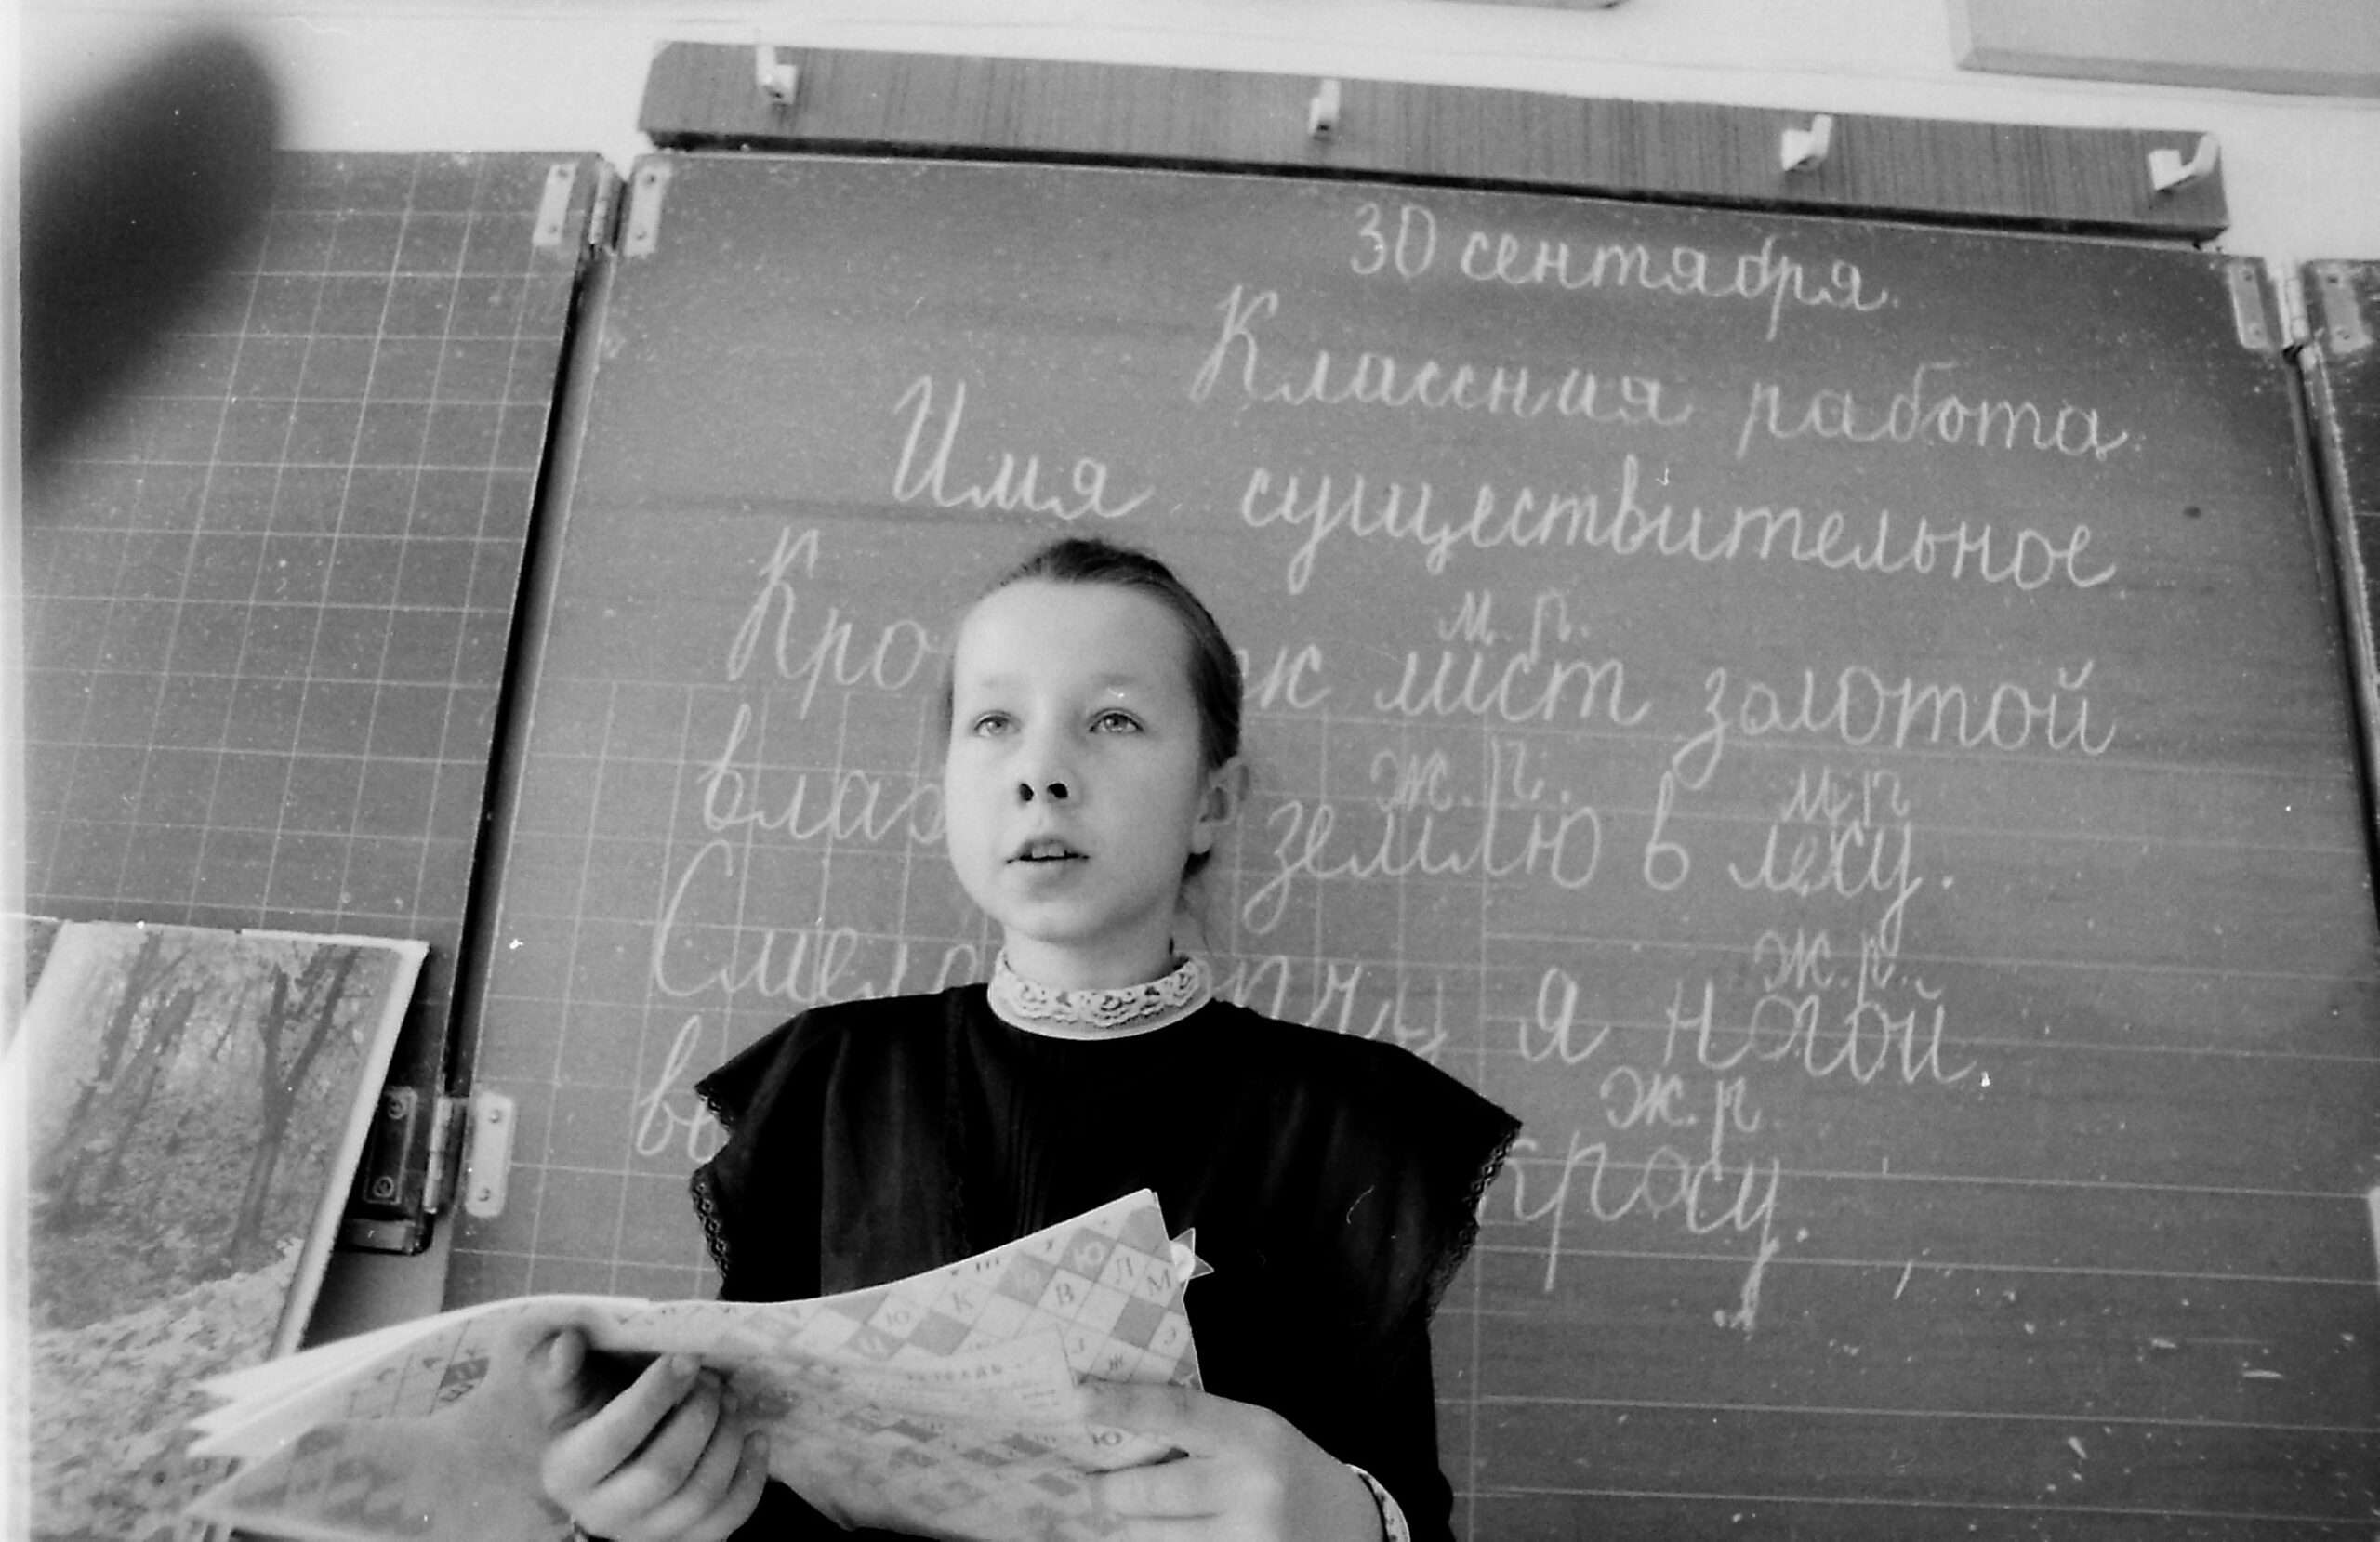 30 сентября.
Классная работа.
Имя существительное
м. р.
Кро к лист золотой
ж. р. м. р
влаж землю в лесу.
ж. р.
Смело пчу я ногой
ж. р.
вы красу.
К В Л М
Ю